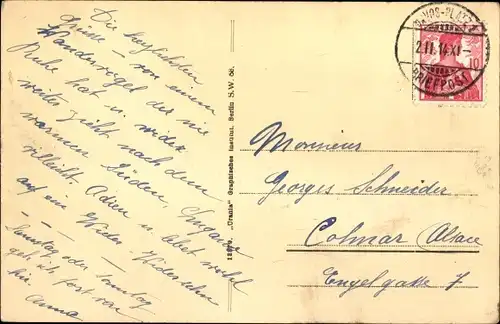 Die herzlichsten
Grüsse - von einem
Wandervögel der nie
Ruhe hat u. wieder
weiter zieht nach dem
warmen Süden,
villeicht. Adieu u. lebet wohl
auf ein Wieder Wiedersehn
Samstag oder Sonntag
geh ich fort von
hier Anna
"Urania" Graphisches Institut, Berlin S.W. 68.
DAVOS-PLATZ
2.II.14.XI-
BRIEFPOST
10
Monsieur
Georges Schneider
Colmar (Alsace
Engelgasse 7